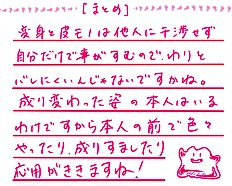 [まとめ]
変身と皮モノは他人に干渉せず
自分だけで事がすむので、わりと
バレにといんじゃないですかね。
成り変わった姿の本人はいる
わけですから本人の前で色々
やったり、成りすましたり
応用がききますね!